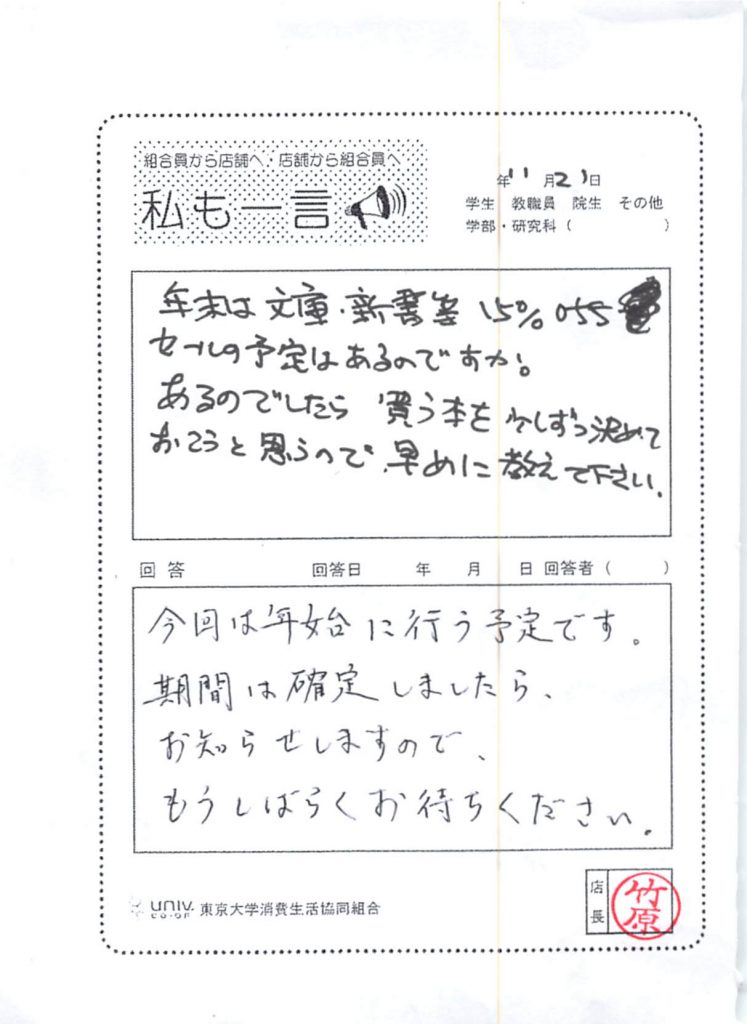 組合員から店舗へ・店舗から組合員へ
私も一言
年 11 月 21 日
学生 教職員 院生 その他
学部・研究科 ( )
年末は 文庫・新書等 15% OFF
セールの予定はあるのですか。
あるのでしたら 買う本を 少しずつ決めて
おこうと思うので、早めに教えて下さい。
回答 回答日 年 月 日 回答者 ( )
今回は年始に行う予定です。
期間は確定しましたら、
お知らせしますので、
もうしばらくお待ちください。
univ. CO-OP 東京大学消費生活協同組合
店長 竹原